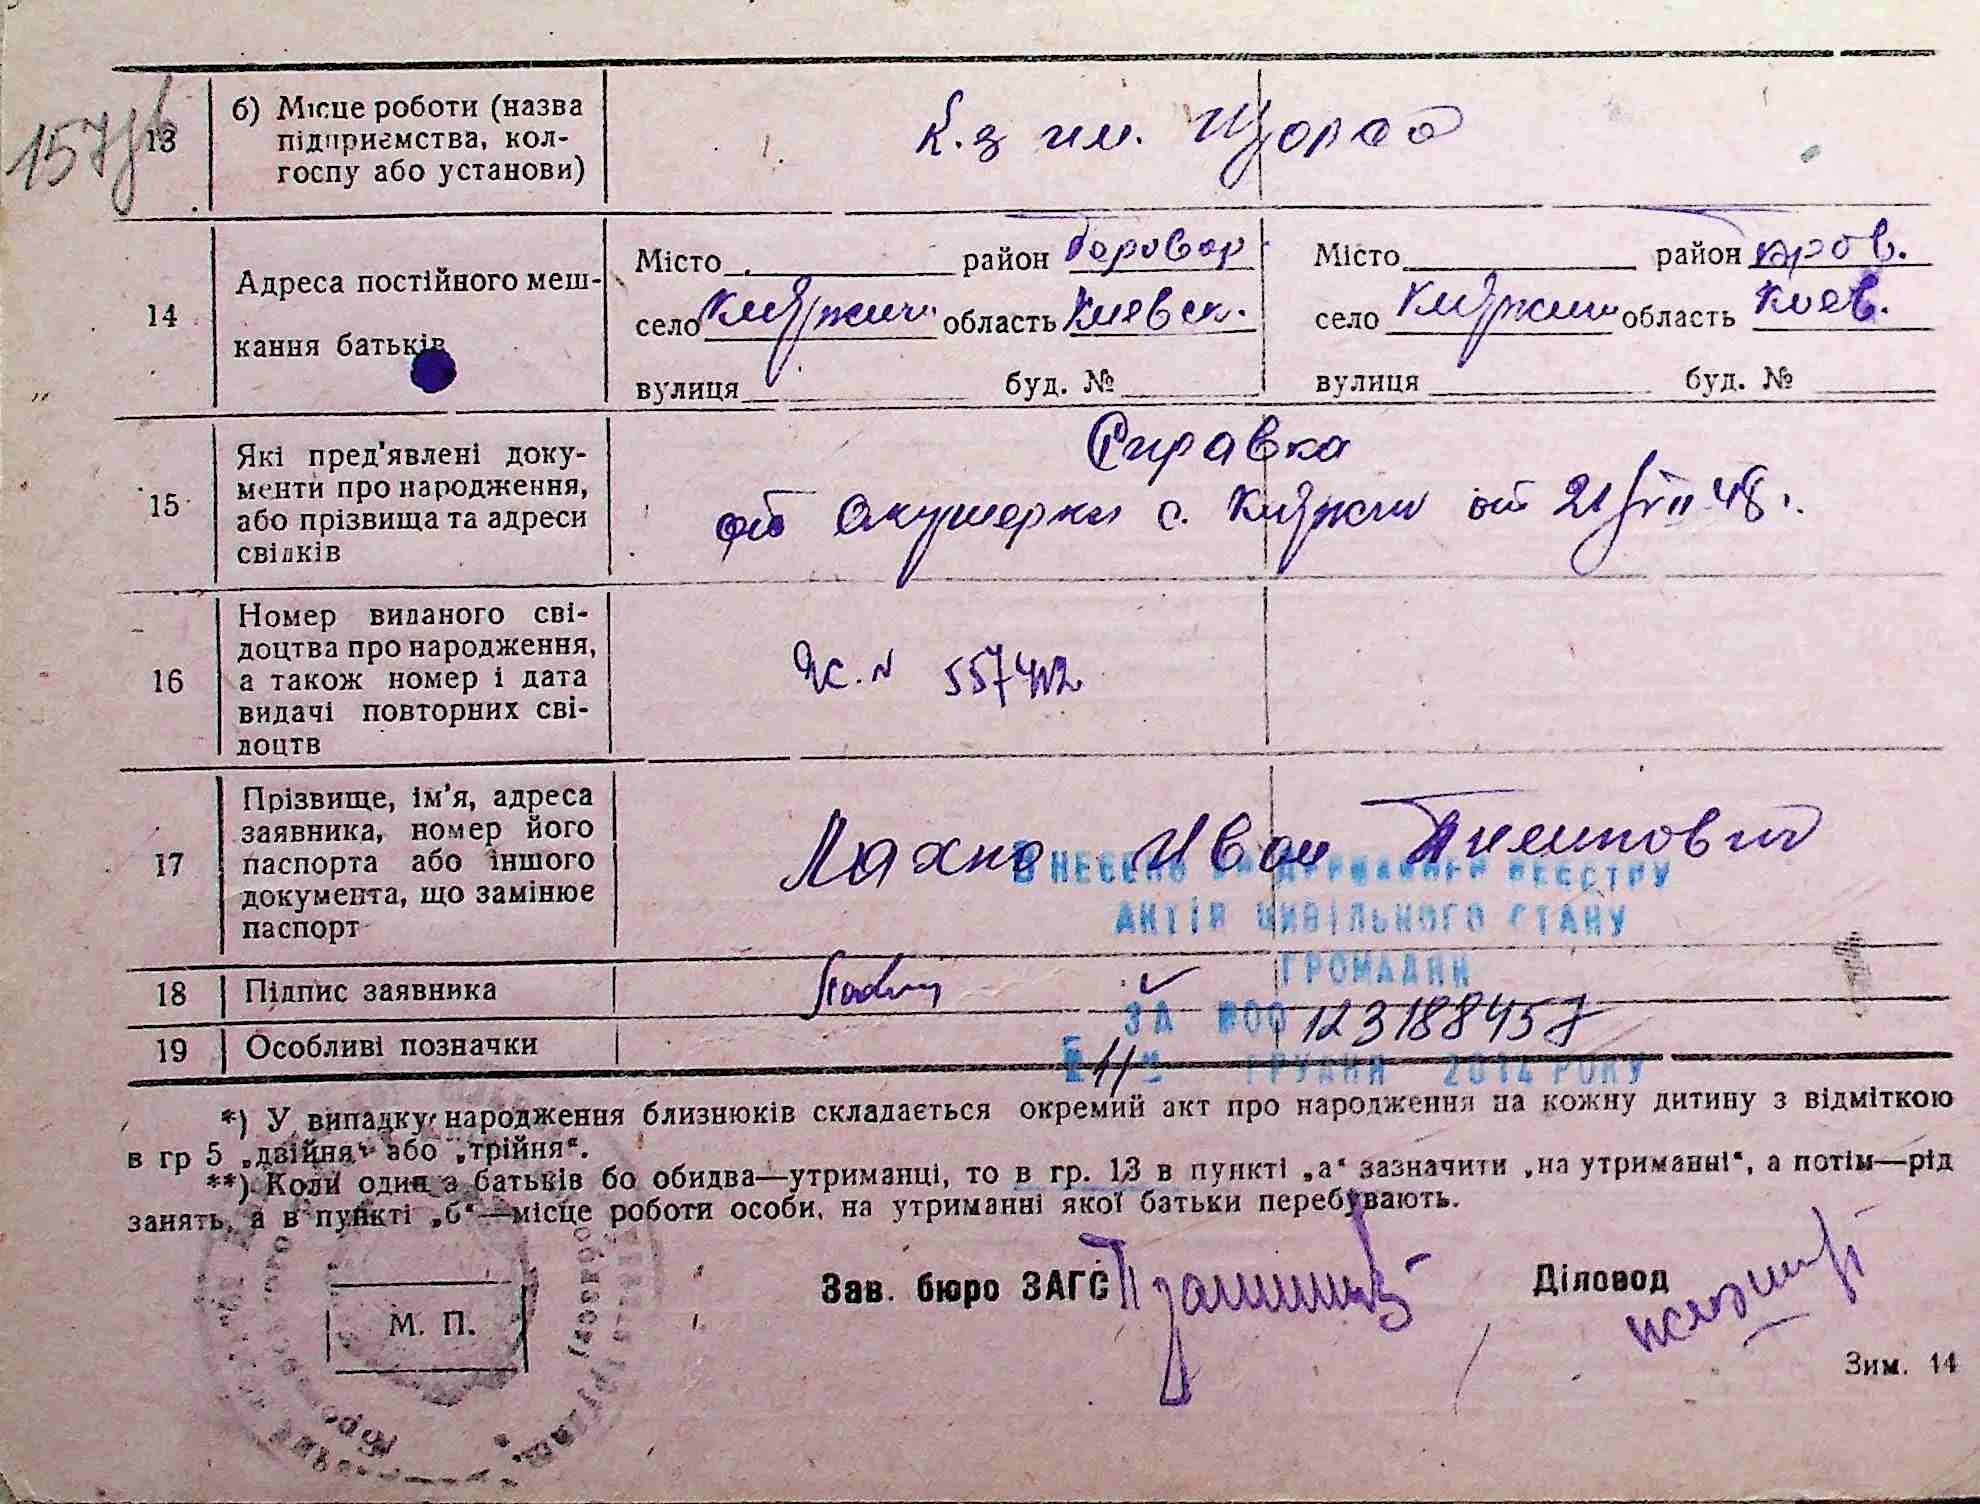 157
13
б) Місце роботи (назва
підприємства, кол-
госпу або установи)
к.з им. Щорса
14
Адреса постійного меш-
кання батьків
Місто район Бровар
село Княжичи область Киевск.
вулиця буд. №
Місто район Бров.
село Княжичи область Киев.
вулиця буд. №
15
Які пред'явлені доку-
менти про народження,
або прізвища та адреси
свідків
Справка
от акушерки с. Княжичи от 21/VII 48 г.
16
Номер виданого сві-
доцтва про народження,
а також номер і дата
видачі повторних сві-
доцтв
№ 557412
17
Прізвище, ім'я, адреса
заявника, номер його
паспорта або іншого
документа, що замінює
паспорт
Лахно Иван
ВНЕСЕНО ДО ДЕРЖАВНОГО РЕЄСТРУ
АКТІВ ЦИВІЛЬНОГО СТАНУ
ГРОМАДЯН
18
Підпис заявника
ЗА №00 123188457
19
Особливі позначки
"11" ГРУДНЯ 2014 РОКУ
*) У випадку народження близнюків складається окремий акт про народження на кожну дитину з відміткою
в гр 5 „двійня“ або „трійня“.
**) Коли один з батьків бо обидва—утриманці, то в гр. 13 в пункті „а“ зазначити „на утриманні“, а потім—рід
занять, а в пункті „б“—місце роботи особи, на утриманні якої батьки перебувають.
М. П.
Зав. бюро ЗАГС
Діловод
Зим. 14